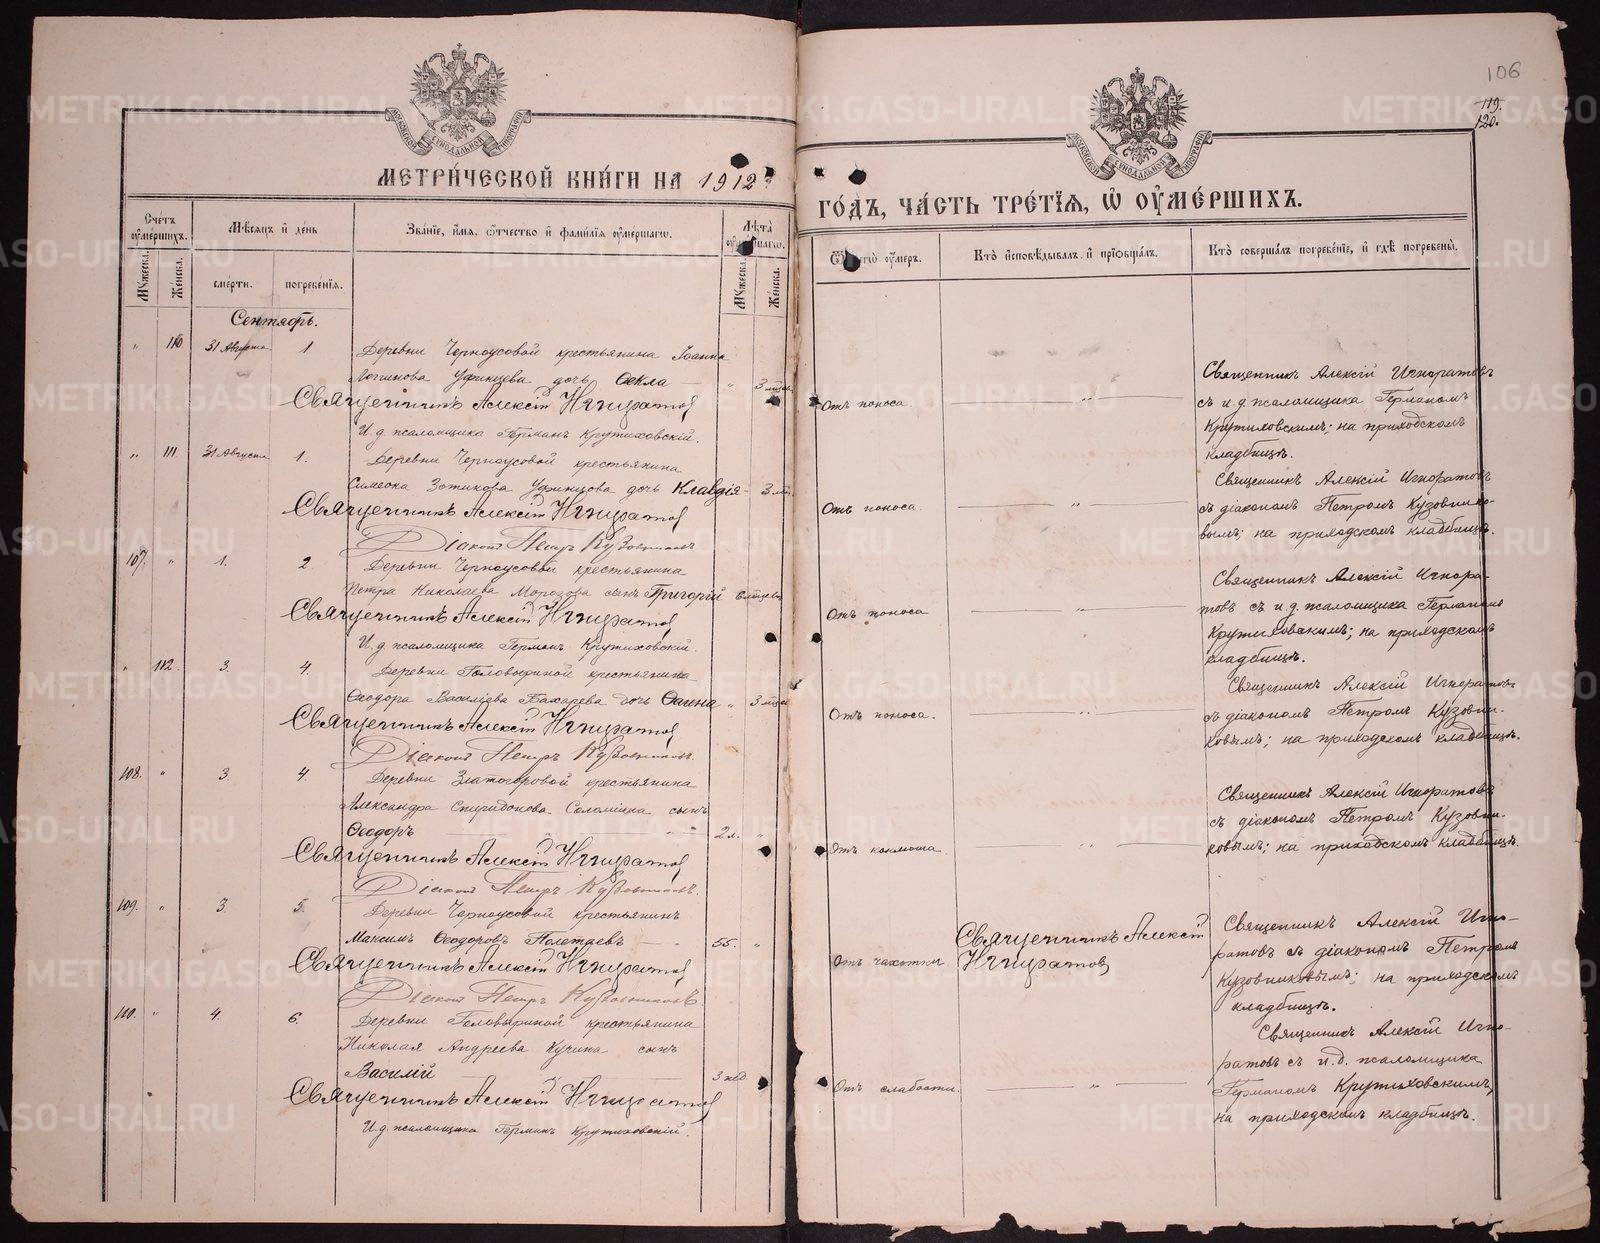 106
119.
120.
МОСКОВСКОЙ СУНОДАЛЬНОЙ ТИПОГРАФІИ
МОСКОВСКОЙ СУНОДАЛЬНОЙ ТИПОГРАФІИ
МЕТРИ́ЧЕСКОЙ КНИ́ГИ НА 1912
ГО́ДЪ, ЧА́СТЬ ТРЕ́ТЇѦ, Ѡ҆ ОУ҆МЕ́РШИХЪ.
Сче́тъ оу҆ме́ршихъ.
Мꙋжеска.
Женска.
Мѣсѧцъ и҆ де́нь
сме́рти.
погребе́нїѧ.
Зва́нїе, и҆́мѧ, ѻ҆́тчество и҆ фами́лїѧ оу҆ме́ршагѡ.
Лѣ́та
Мꙋжеска.
Женска.
оу҆́меръ.
Кто̀ и҆сповѣ́дывалъ и҆ прїѡбща́лъ.
Кто̀ соверша́лъ погребе́нїе, и҆ гдѣ̀ погребены̀.
Сентябрь.
„ 110 31 Августа 1 Деревни Черноусовой крестьянина Іоанна
Логгинова Уфинцева дочь Ѳекла „ 3 мѣсяц.
Священникъ Алексій Игноратов
И. д. псаломщика Германъ Крутиховскій.
Отъ поноса.
Священникъ Алексій Игноратовъ
съ и. д. псаломщика Германомъ
Крутиховскимъ; на приходскомъ
кладбищѣ.
„ 111. 31 Августа 1. Деревни Черноусовой крестьянина
Симеона Зотикова Уфинцова дочь Клавдія 3 мѣс.
Священникъ Алексій Игноратов
Діаконъ Петръ Кузовниковъ
Отъ поноса. „
Священникъ Алексій Игноратовъ
съ діакономъ Петромъ Кузовнико-
вымъ; на приходскомъ кладбищѣ.
107. „ 1. 2 Деревни Черноусовой крестьянина
Петра Николаева Морозова сынъ Григорій 6 мѣсяцев
Священникъ Алексій Игноратов
И. д псаломщика Германъ Крутиховскій.
Отъ поноса „
Священникъ Алексій Игнора-
товъ съ и. д. псаломщика Германомъ
Крутиховскимъ; на приходскомъ
кладбищѣ.
„ 112. 3. 4. Деревни Головыриной крестьянина
Ѳеодора Василіева Бахарева дочь Фаина „ 3 мѣсяц
Священникъ Алексій Игноратов
Діаконъ Петръ Кузовниковъ.
Отъ поноса.
Священникъ Алексій Игноратовъ
съ діакономъ Петромъ Кузовни-
ковымъ; на приходскомъ кладбищѣ.
108. „ 3. 4. Деревни Златогоровой крестьянина
Александра Спиридонова Соломина сынъ
Ѳеодоръ 2 л. „
Священникъ Алексій Игноратов
Діаконъ Петръ Кузовниковъ.
Отъ коклюша.
Священникъ Алексій Игноратовъ
съ діакономъ Петромъ Кузовни-
ковымъ; на приходскомъ кладбищѣ.
109. „ 3. 5. Деревни Черноусовой крестьянинъ
Максимъ Ѳеодоровъ Полетаевъ 55. „
Священникъ Алексій Игноратов
Діаконъ Петръ Кузовниковъ.
Отъ чахотки
Священникъ Алексій
Игноратов
Священникъ Алексій Игно-
ратовъ съ діакономъ Петромъ
Кузовниковымъ; на приходскомъ
кладбищѣ.
110. „ 4. 6. Деревни Головыриной крестьянина
Николая Андреева Кучина сынъ
Василій 3 нед
Священникъ Алексій Игноратов
И. д. псаломщика Германъ Крутиховскій.
Отъ слабости. „
Священникъ Алексій Игно-
ратовъ съ и.д. псаломщика
Германомъ Крутиховскимъ,
на приходскомъ кладбищѣ.
METRIKI.GASO-URAL.RU